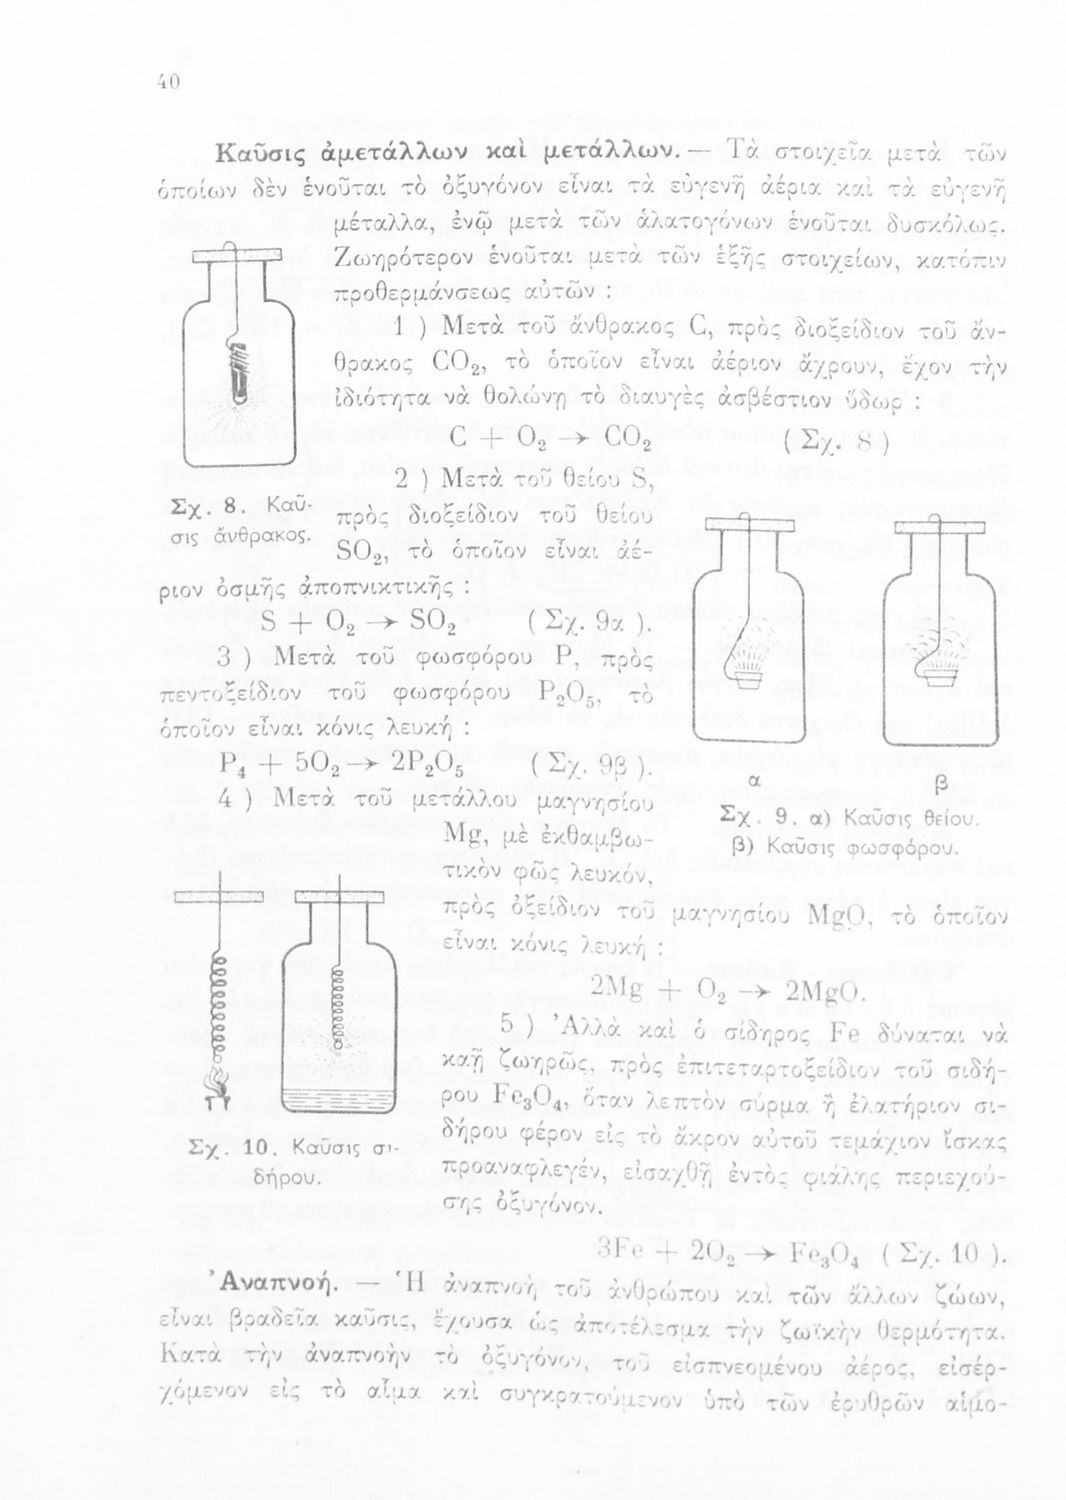 40
Καῦσις ἀμετάλλων καὶ μετάλλων. — Τὰ στοιχεῖα μετὰ τῶν
ὁποίων δὲν ἑνοῦται τὸ ὀξυγόνον εἶναι τὰ εὐγενῆ ἀέρια καὶ τὰ εὐγενῆ
μέταλλα, ἐνῷ μετὰ τῶν ἁλατογόνων ἑνοῦται δυσκόλως.
Ζωηρότερον ἑνοῦται μετὰ τῶν ἑξῆς στοιχείων, κατόπιν
προθερμάνσεως αὐτῶν :
1 ) Μετὰ τοῦ ἄνθρακος C, πρὸς διοξείδιον τοῦ ἄν-
θρακος CO₂, τὸ ὁποῖον εἶναι ἀέριον ἄχρουν, ἔχον τὴν
ἰδιότητα νὰ θολώνῃ τὸ διαυγὲς ἀσβέστιον ὕδωρ :
C + O₂ → CO₂ ( Σχ. 8 )
Σχ. 8. Καῦ-
σις ἄνθρακος.
2 ) Μετὰ τοῦ θείου S,
πρὸς διοξείδιον τοῦ θείου
SO₂, τὸ ὁποῖον εἶναι ἀέ-
ριον ὀσμῆς ἀποπνικτικῆς :
S + O₂ → SO₂ ( Σχ. 9α ).
3 ) Μετὰ τοῦ φωσφόρου P, πρὸς
πεντοξείδιον τοῦ φωσφόρου P₂O₅, τὸ
ὁποῖον εἶναι κόνις λευκή :
P₄ + 5O₂ → 2P₂O₅ ( Σχ. 9β ).
α β
Σχ. 9. α) Καῦσις θείου.
β) Καῦσις φωσφόρου.
4 ) Μετὰ τοῦ μετάλλου μαγνησίου
Mg, μὲ ἐκθαμβω-
τικὸν φῶς λευκόν,
πρὸς ὀξείδιον τοῦ μαγνησίου MgO, τὸ ὁποῖον
εἶναι κόνις λευκή :
2Mg + O₂ → 2MgO.
5 ) Ἀλλὰ καὶ ὁ σίδηρος Fe δύναται νὰ
καῇ ζωηρῶς, πρὸς ἐπιτεταρτοξείδιον τοῦ σιδή-
ρου Fe₃O₄, ὅταν λεπτὸν σύρμα ἢ ἐλατήριον σι-
δήρου φέρον εἰς τὸ ἄκρον αὐτοῦ τεμάχιον ἴσκας
προαναφλεγέν, εἰσαχθῇ ἐντὸς φιάλης περιεχού-
σης ὀξυγόνον.
Σχ. 10. Καῦσις σι-
δήρου.
3Fe + 2O₂ → Fe₃O₄ ( Σχ. 10 ).
Ἀναπνοή. — Ἡ ἀναπνοὴ τοῦ ἀνθρώπου καὶ τῶν ἄλλων ζώων,
εἶναι βραδεῖα καῦσις, ἔχουσα ὡς ἀποτέλεσμα τὴν ζωϊκὴν θερμότητα.
Κατὰ τὴν ἀναπνοὴν τὸ ὀξυγόνον, τοῦ εἰσπνεομένου ἀέρος, εἰσέρ-
χόμενον εἰς τὸ αἷμα καὶ συγκρατούμενον ὑπὸ τῶν ἐρυθρῶν αἱμο-